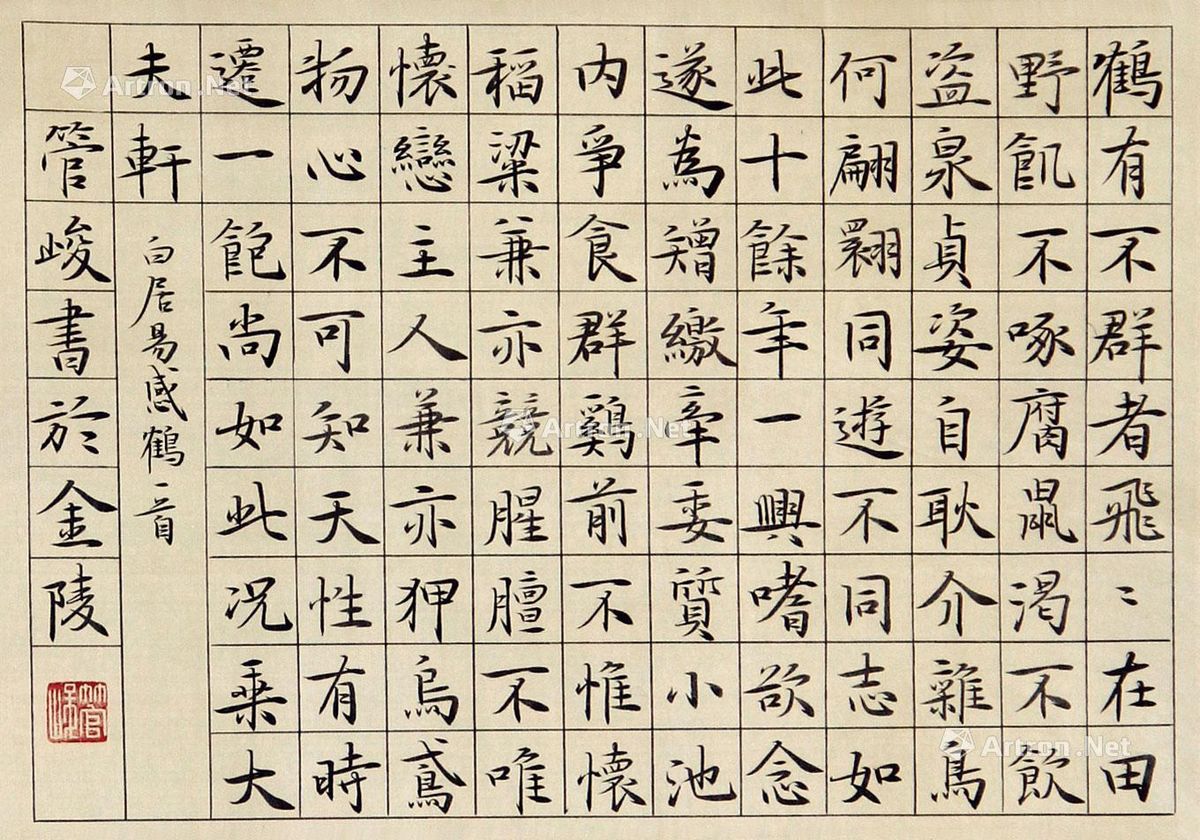 鶴有不群者飛〻在田
野飢不啄腐鼠渴不飲
盗泉貞姿自耿介雜鳥
何翩翾同遊不同志如
此十餘年一興嗜欲念
遂為矰繳牽委質小池
内爭食群鷄前不惟懷
稻粱兼亦競腥膻不唯
懷戀主人兼亦狎烏鳶
物心不可知天性有時
遷一飽尚如此况乘大
夫軒
白居易感鶴一首
管峻書於金陵
管峻
Artron.Net
Artron.Net
Artron.Net